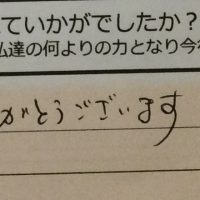 ていかがでしたか?
達の何よりの力となり今
がとうございます